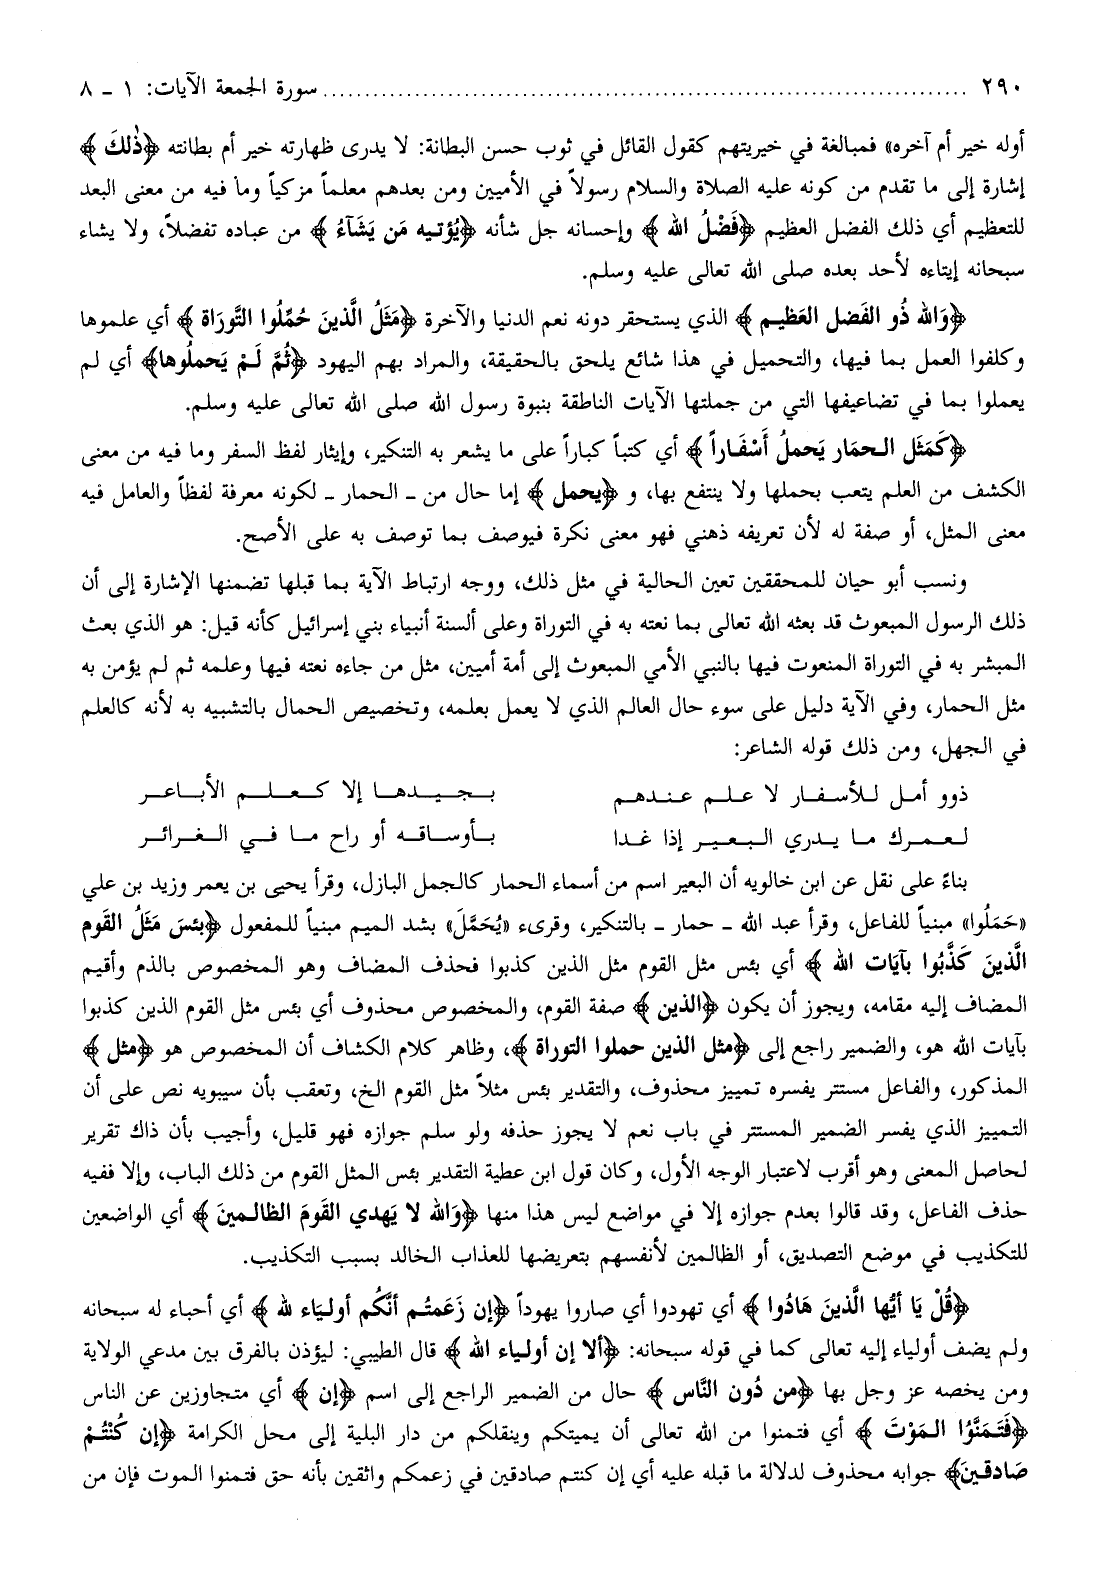 ٢٩٠ ........................................................................ سورة الجمعة الآيات: ١ ـ ٨
أوله خير أم آخره» فمبالغة في خيريتهم كقول القائل في ثوب حسن البطانة: لا يدرى ظهارته خير أم بطانته ﴿ذٰلكَ﴾
إشارة إلى ما تقدم من كونه عليه الصلاة والسلام رسولاً في الأميين ومن بعدهم معلماً مزكياً وما فيه من معنى البعد
للتعظيم أي ذلك الفضل العظيم ﴿فَضْلُ الله﴾ وإحسانه جل شأنه ﴿يُؤتيه مَن يَشَآءُ﴾ من عباده تفضلاً، ولا يشاء
سبحانه إيتاءه لأحد بعده صلى الله تعالى عليه وسلم.
﴿وَالله ذُو الفَضل العَظيم﴾ الذي يستحقر دونه نعم الدنيا والآخرة ﴿مَثَلُ الَّذينَ حُمِّلُوا التَّورَاة﴾ أي علموها
وكلفوا العمل بما فيها، والتحميل في هذا شائع يلحق بالحقيقة، والمراد بهم اليهود ﴿ثُمَّ لَمْ يَحملُوها﴾ أي لم
يعملوا بما في تضاعيفها التي من جملتها الآيات الناطقة بنبوة رسول الله صلى الله تعالى عليه وسلم.
﴿كَمَثَل الحمَار يَحملُ أَسْفَاراً﴾ أي كتباً كباراً على ما يشعر به التنكير، وإيثار لفظ السفر وما فيه من معنى
الكشف من العلم يتعب بحملها ولا ينتفع بها، و ﴿يحمل﴾ إما حال من ـ الحمار ـ لكونه معرفة لفظاً والعامل فيه
معنى المثل، أو صفة له لأن تعريفه ذهني فهو معنى نكرة فيوصف بما توصف به على الأصح.
ونسب أبو حيان للمحققين تعين الحالية في مثل ذلك، ووجه ارتباط الآية بما قبلها تضمنها الإشارة إلى أن
ذلك الرسول المبعوث قد بعثه الله تعالى بما نعته به في التوراة وعلى ألسنة أنبياء بني إسرائيل كأنه قيل: هو الذي بعث
المبشر به في التوراة المنعوت فيها بالنبي الأمي المبعوث إلى أمة أميين، مثل من جاءه نعته فيها وعلمه ثم لم يؤمن به
مثل الحمار، وفي الآية دليل على سوء حال العالم الذي لا يعمل بعلمه، وتخصيص الحمال بالتشبيه به لأنه كالعلم
في الجهل، ومن ذلك قوله الشاعر:
ذوو أمل للأسفار لا علم عندهم بجيدها إلا كعلم الأباعر
لعمرك ما يدري البعير إذا غدا بأوساقه أو راح ما في الغرائر
بناءً على نقل عن ابن خالويه أن البعير اسم من أسماء الحمار كالجمل البازل، وقرأ يحيى بن يعمر وزيد بن علي
«حَمَلُوا» مبنياً للفاعل، وقرأ عبد الله ـ حمار ـ بالتنكير، وقرىء «يُحَمَّلَ» بشد الميم مبنياً للمفعول ﴿بئسَ مَثَلُ القَوم
الَّذينَ كَذَّبُوا بآيَات الله﴾ أي بئس مثل القوم مثل الذين كذبوا فحذف المضاف وهو المخصوص بالذم وأقيم
المضاف إليه مقامه، ويجوز أن يكون ﴿الذين﴾ صفة القوم، والمخصوص محذوف أي بئس مثل القوم الذين كذبوا
بآيات الله هو، والضمير راجع إلى ﴿مثل الذين حملوا التوراة﴾، وظاهر كلام الكشاف أن المخصوص هو ﴿مثل﴾
المذكور، والفاعل مستتر يفسره تمييز محذوف، والتقدير بئس مثلاً مثل القوم الخ، وتعقب بأن سيبويه نص على أن
التمييز الذي يفسر الضمير المستتر في باب نعم لا يجوز حذفه ولو سلم جوازه فهو قليل، وأجيب بأن ذاك تقرير
لحاصل المعنى وهو أقرب لاعتبار الوجه الأول، وكان قول ابن عطية التقدير بئس المثل القوم من ذلك الباب، وإلا ففيه
حذف الفاعل، وقد قالوا بعدم جوازه إلا في مواضع ليس هذا منها ﴿وَالله لا يَهدي القَومَ الظالمينَ﴾ أي الواضعين
للتكذيب في موضع التصديق، أو الظالمين لأنفسهم بتعريضها للعذاب الخالد بسبب التكذيب.
﴿قُلْ يَا أَيُّها الَّذينَ هَادُوا﴾ أي تهودوا أي صاروا يهوداً ﴿إن زَعَمتُم أنَّكُم أوليَاء لله﴾ أي أحباء له سبحانه
ولم يضف أولياء إليه تعالى كما في قوله سبحانه: ﴿ألا إن أولياء الله﴾ قال الطيبي: ليؤذن بالفرق بين مدعي الولاية
ومن يخصه عز وجل بها ﴿من دُون النَّاس﴾ حال من الضمير الراجع إلى اسم ﴿إن﴾ أي متجاوزين عن الناس
﴿فَتَمَنَّوُا المَوْتَ﴾ أي فتمنوا من الله تعالى أن يميتكم وينقلكم من دار البلية إلى محل الكرامة ﴿إن كُنْتُمْ
صَادقينَ﴾ جوابه محذوف لدلالة ما قبله عليه أي إن كنتم صادقين في زعمكم واثقين بأنه حق فتمنوا الموت فإن من